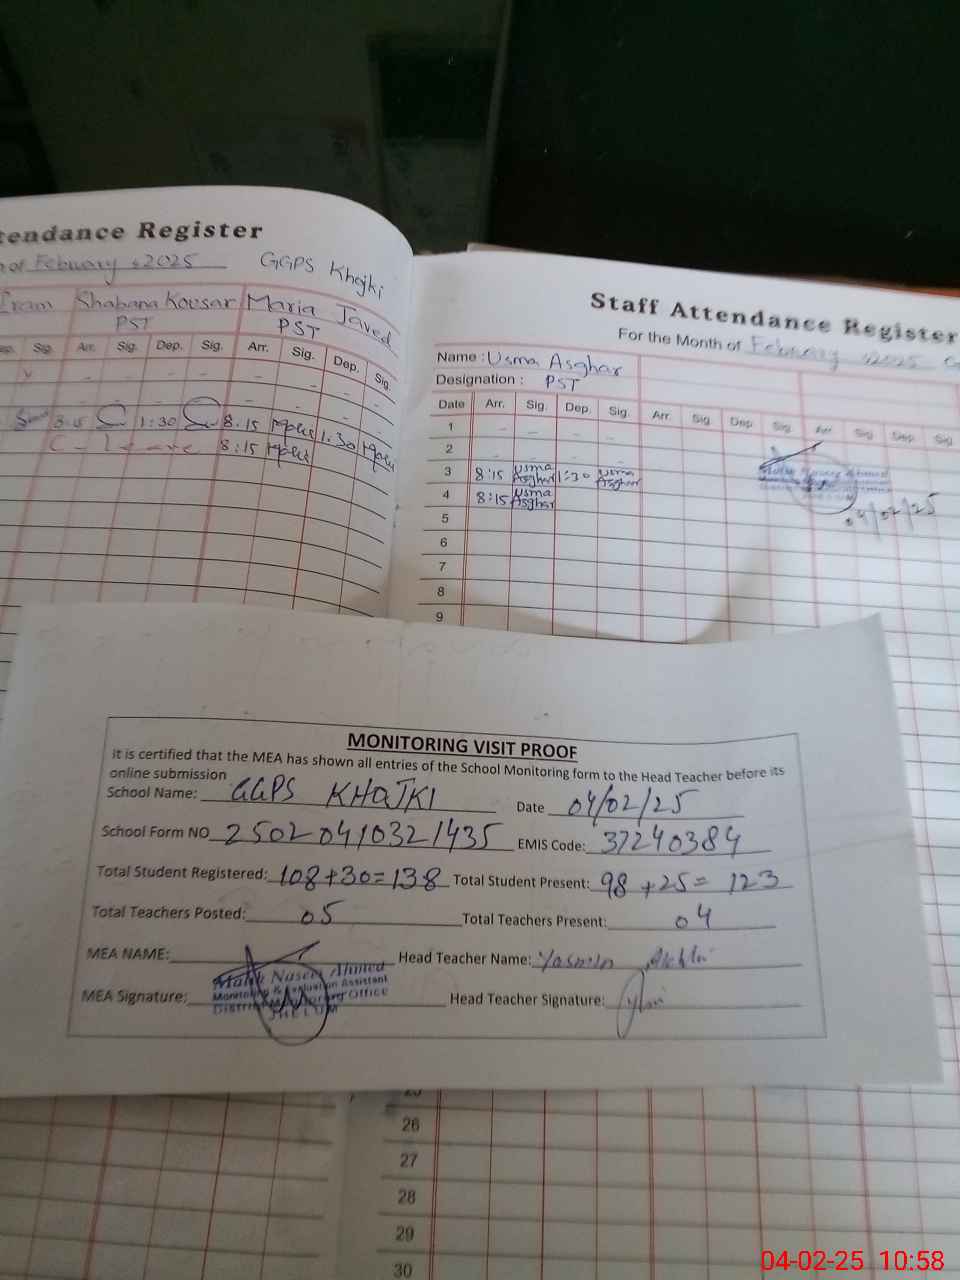 tendance Register
of February 2025 GGPS Khojki
Iram Shabana Kousar Maria Javed
PST PST
ep. Sig. Arr. Sig. Dep. Sig. Arr. Sig. Dep. Sig.
8:15 1:30 8:15 1:30
C - Leave 8:15
Staff Attendance Register
For the Month of February 2025 G
Name : Usma Asghar
Designation : PST
Date Arr. Sig. Dep. Sig. Arr. Sig Dep Sig Arr Sig Dep Sig
1
2
3 8:15 Usma Asghar 1:30 Usma Asghar
4 8:15 Usma Asghar
04/02/25
5
6
7
8
9
MONITORING VISIT PROOF
It is certified that the MEA has shown all entries of the School Monitoring form to the Head Teacher before its
online submission
School Name: GGPS KHOJKI Date 04/02/25
School Form NO 25020410321435 EMIS Code: 37240384
Total Student Registered: 108+30=138 Total Student Present: 98+25=123
Total Teachers Posted: 05 Total Teachers Present: 04
MEA NAME: Head Teacher Name: Yasmin
Malik Naseer Ahmed
Monitoring & Evaluation Assistant
District Monitoring Office
JHELUM
MEA Signature: Head Teacher Signature:
25
26
27
28
29
30
04-02-25 10:58